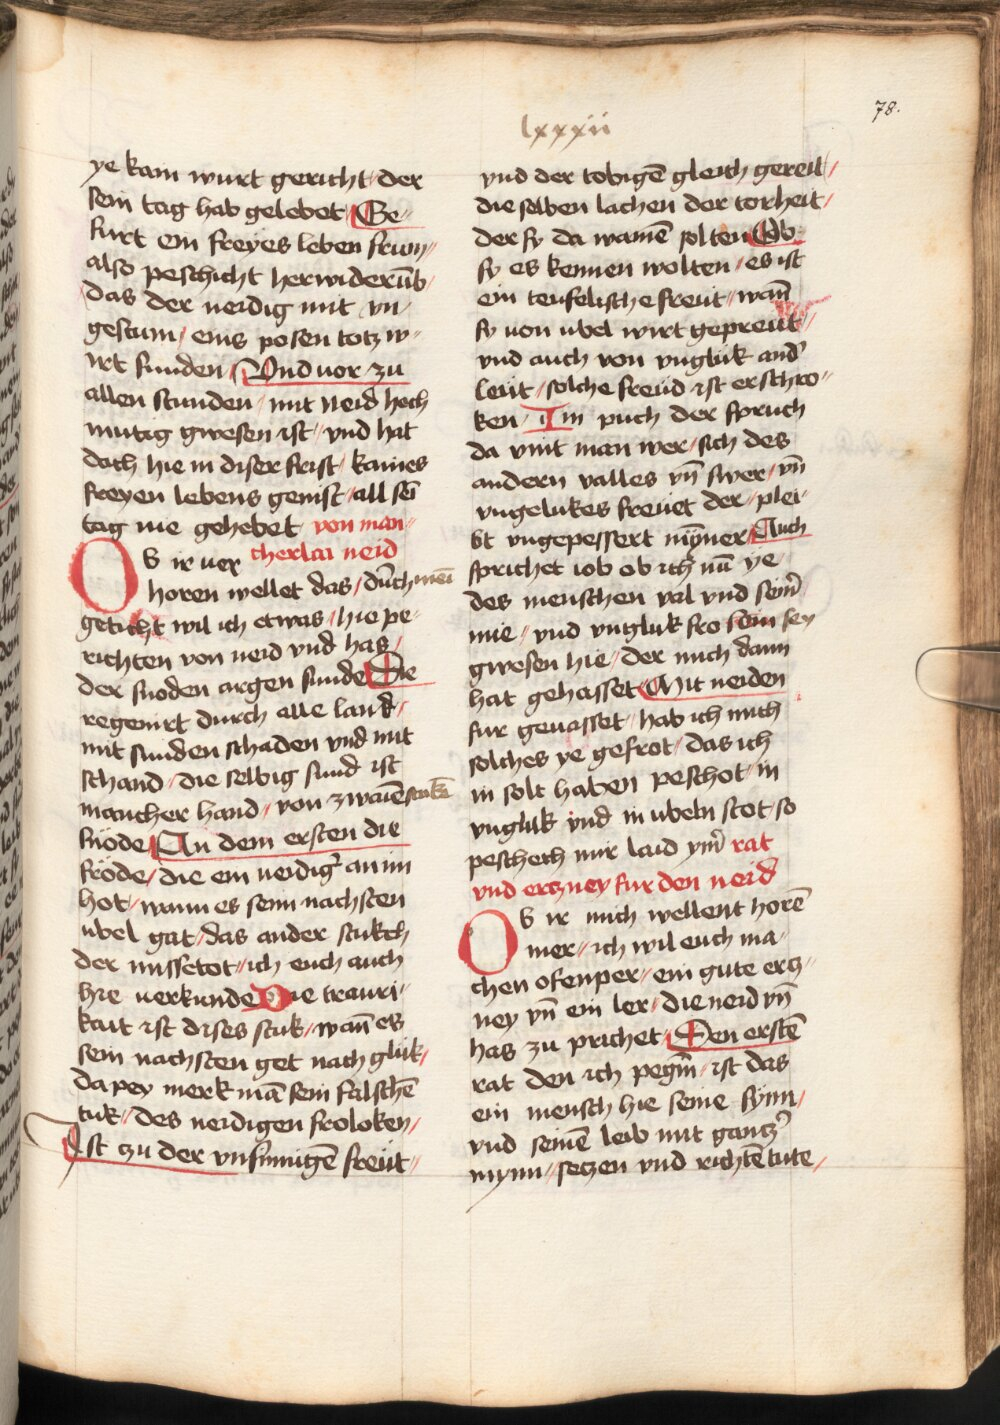 lxxxii
78.
ye kain wurt gericht / der
sein tag hab gelebet / Ge-
furt ein freyes leben frum //
also peschicht herwiderūb /
das der neidig mit vn-
gestum / eins posen totz w-
irt funden / Vnd vor zu
allen stunden / mit neid hoch
mutig gwesen ist / vnd hat
doch hie in diser frist / kaines
freyen lebens genist / all sei
tag nie gehebet / von man-
cherlai neid
Ob ir ver
horen wellet das / durch mei
geticht wil ich etwas / hie pe-
richten von neid vnd has /
der snoden argen sunde / Die
regenirt durch alle land /
mit sunden schaden vnd mit
schand / die selbig sund ist
mancher hand / von zwaien stukē
snöde / An dem ersten die
fröde / die ein neidig an im
hot / wann es seim nachsten
ubel gat / das ander stukch
der missetot / ich euch auch
hie verkunde Die trauri-
kait ist dises stuk / wan̄ es
sein nachsten get nach gluk /
da pey merk mā sein falschē
tuk / des neidigen froloken /
Ist zu der vnsinnigē freüt //
vnd der tobigē gleich gereit /
die selben lachen der torheit /
der sy da wainē solten / Ob
sy es kennen wolten / es ist
ein teufelische freüt / wan̄
sy von ubel wirt gepreüt //
vnd auch von vngluk and'
leüt / solche freüd ist erschro-
ken / Im puch der spruch
da vint man wer / sich des
andern valles vn̄ swer / vn̄
vngelukes freüet der / plei-
bt vngepessert nymer / Auch
sprichet iob ob ich nā ye
des menschen val vnd seim̄
mie / vnd vngluk fro sein sey
gwesen hie / der mich dann
hat gehasset / Mit neiden
fur gevasset / hab ich mich
solches ye gefrot / das ich
in solt haben peschot / in
vngluk vnd in ubeln stot / so
peschech mir laid ym̄ rat
vnd ertzney fur den neid
Ob ir mich wellent horē
mer / ich wil euch ma-
chen ofenper / ein gute ertz-
ney vn̄ ein ler / die neid vn̄
has zu prichet / Den erstē
rat den ich pegin̄ / ist das
ein mensch hie seine synn /
vnd seinē leib mit gantz'
mynn / setzen vnd richtē tute /